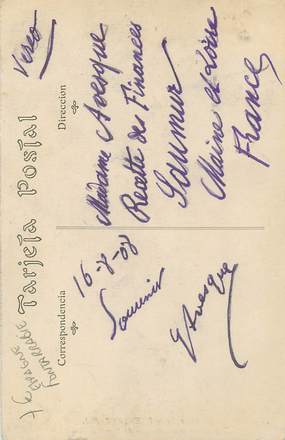 Verso
Tarjeta Postal
Correspondencia
Dirección
16-8-08
Souvenir
E Avesque
Madame Avesque
Recette des Finances
Saumur
Maine et Loire
France
ESPAGNE
FONTARRABIE